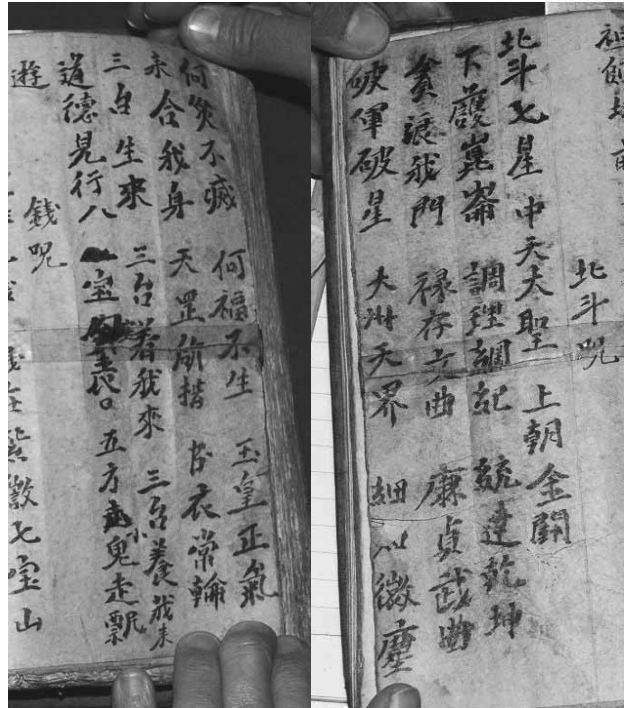 祖師
北斗呪
北斗七星 中天大聖 上朝金闕
下護崑崙 調理綱紀 統達乾坤
貪狼我門 祿存文曲 廉貞武曲
破軍破星 大洲天界 細以微塵
何災不滅 何福不生 玉皇正氣
来合我身 天罡所指 衣常輪
三台生來 三台着我來 三台養我来
道德見行八 五方小鬼走
錢呪
遊 七宝山